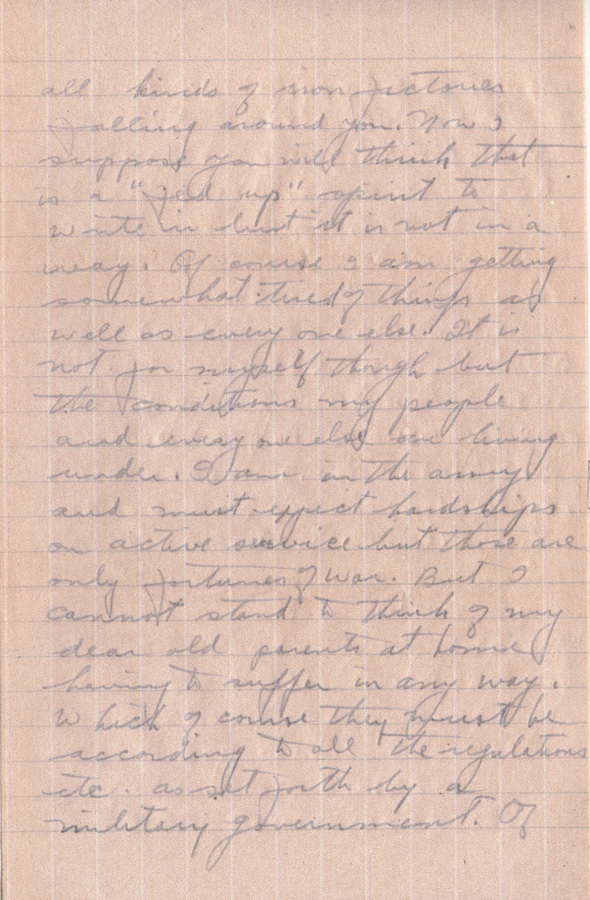 all kinds of iron factories
falling around you. Now I
suppose you will think that
is a "fed up" spirit to
write in but it is not in a
way. Of course I am getting
somewhat tired of things as
well as every one else. It is
not for myself though but
the conditions my people
and every one else are living
under. I am in the army
and must expect hardships
on active service but those are
only fortunes of war. But I
cannot stand to think of my
dear old parents at home
having to suffer in any way.
Which of course they must be
according to all the regulations
etc. as set forth by a
military government. Of